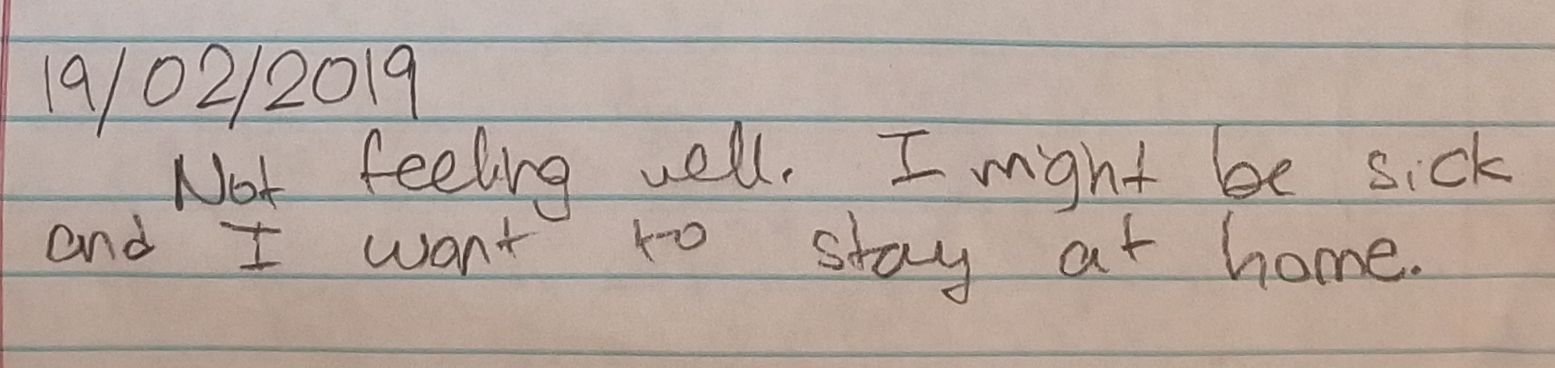 19/02/2019
Not feeling well. I might be sick
and I want to stay at home.